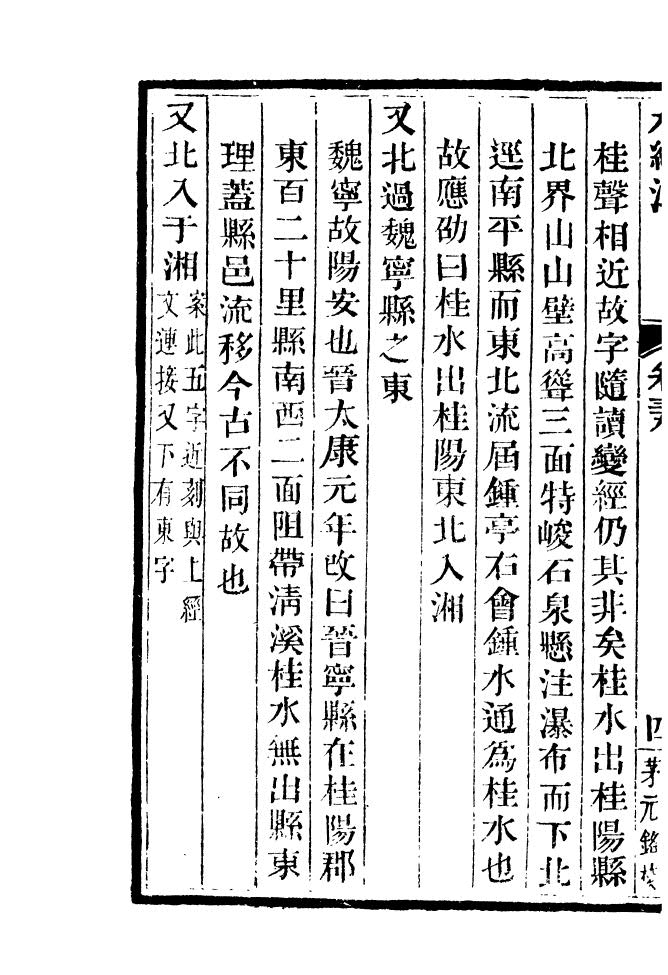 水經注 卷三 四 茅元銘校
桂聲相近故字隨讀變經仍其非矣桂水出桂陽縣
北界山山壁高聳三面特峻石泉懸注瀑布而下北
逕南平縣而東北流屆鍾亭右會鍾水通爲桂水也
故應劭曰桂水出桂陽東北入湘
又北過魏寧縣之東
魏寧故陽安也晉太康元年改曰晉寧縣在桂陽郡
東百二十里縣南西二面阻帶淸溪桂水無出縣東
理蓋縣邑流移今古不同故也
又北入于湘案此五字近刻與上經
文連接又下有東字